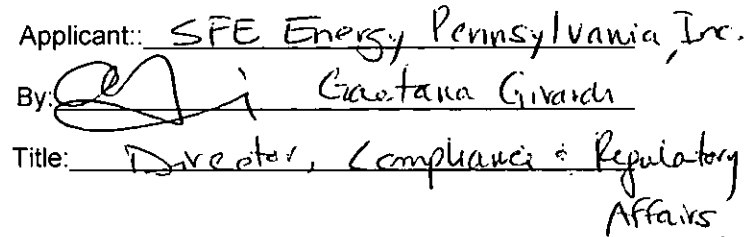 Applicant:: SFE Energy Pennsylvania, Inc.
By: Gaetana Girardi
Title: Director, Compliance & Regulatory
Affairs